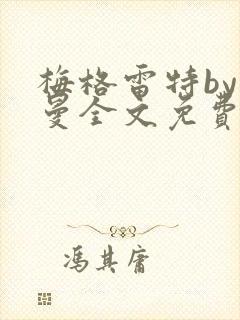 梅格雷特by
曼全文免費
冯其庸